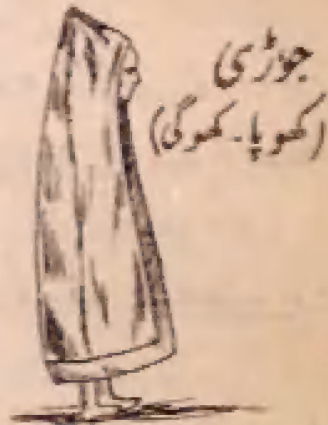 جوڑسی
(کھوپا۔ کھوگی)